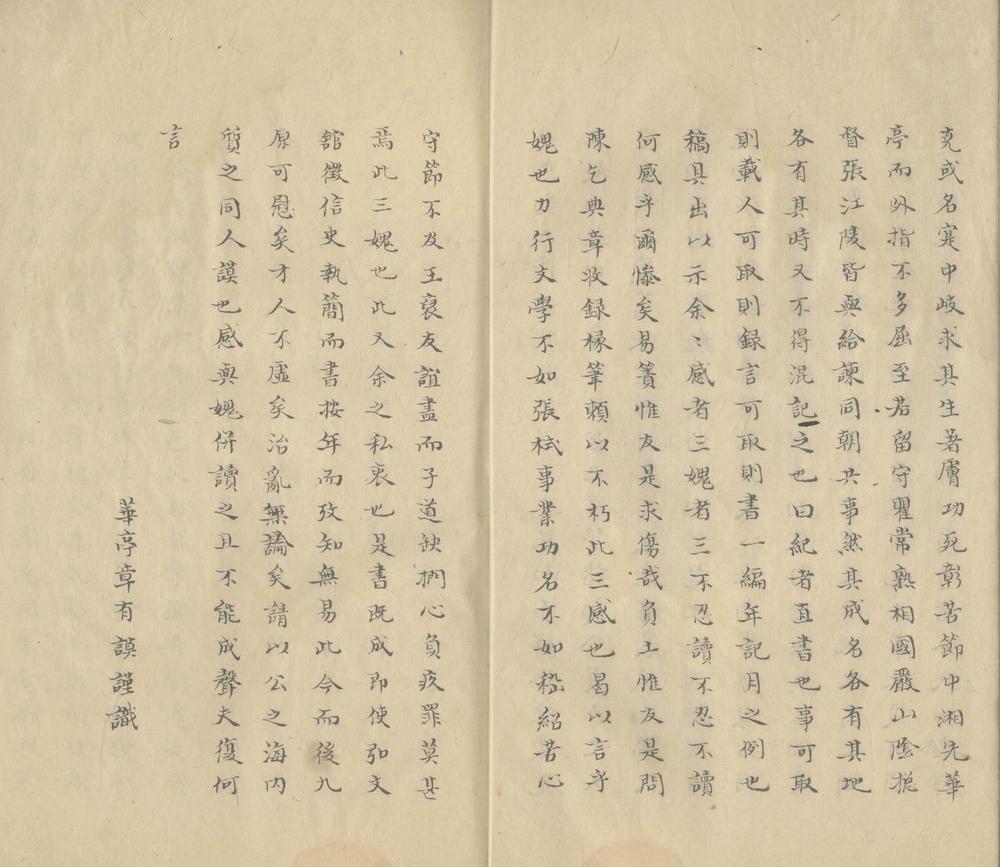 克或名寔中岐求其生著膚功死彰苦節中湘先華
亭而外指不多屈至若留守瞿常熟相國嚴山陰摠
督張江陵皆與給諫同朝共事然其成名各有其地
各有其時又不得混記之也曰紀者直書也事可取
則載人可取則録言可取則書一編年記月之例也
稿具出以示余〻感者三媿者三不忍讀不忍不讀
何感乎爾慘矣易簀惟友是求傷哉負土惟友是問
陳乞典章收録椽筆頼以不朽此三感也曷以言乎
媿也力行文學不如張栻事業功名不如嵇紹苦心
守節不及王裒友誼盡而子道缺捫心負疚罪莫甚
焉此三媿也此又余之私衷也是書既成即使弘文
舘徵信史執簡而書按年而攷知無易此今而後九
原可慰矣才人不虛矣治亂無論矣請以公之海内
質之同人謨也感與媿併讀之且不能成聲夫復何
言
華亭章有謨謹識